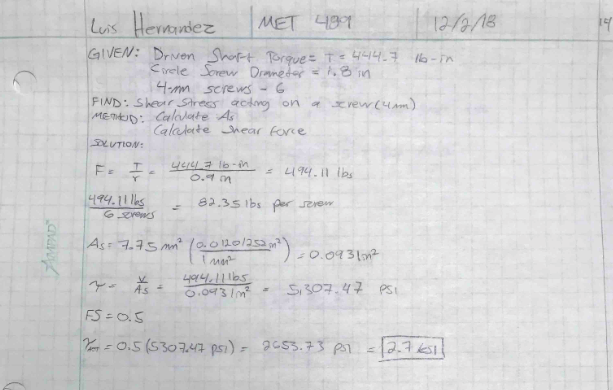 Luis Hernandez MET 489 12/2/18 14
GIVEN: Driven Shaft Torque = T = 444.7 lb-in
Circle Screw Diameter = 1.8 in
4-mm screws - 6
FIND: Shear stress acting on a screw (4mm)
METHOD: Calculate As
Calculate shear force
SOLUTION:
F = T/r = 444.7 lb-in / 0.9 in = 494.11 lbs
494.11 lbs / 6 screws = 82.35 lbs per screw
As = 7.75 mm² (0.0120125 in² / 1 mm²) = 0.0931 in²
τ = V/As = 494.11 lbs / 0.0931 in² = 5,307.47 psi
FS = 0.5
= 0.5 (5307.47 psi) = 2653.73 psi = 2.7 ksi
AMPAD